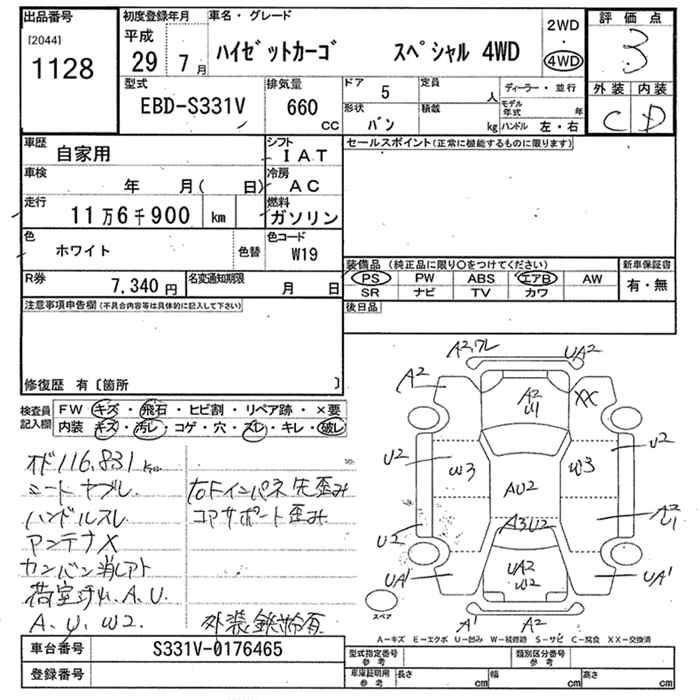 出品番号
[2044]
1128
初度登録年月
平成
29 7月
車名・グレード
ハイゼットカーゴ スペシャル 4WD
2WD
・
4WD
評価点
3
外装 内装
C D
型式
EBD-S331V
排気量
660
CC
ドア 5
定員 人
形状 バン
積載 kg
ディーラー・並行
モデル年式 年
ハンドル 左・右
車歴
自家用
シフト
IAT
車検
年 月( 日)
冷房
AC
走行
11万6千900 km
燃料
ガソリン
色
ホワイト
色替
色コード
W19
R券
7,340円
名変通知期限
月 日
セールスポイント(正常に機能するものに限ります)
装備品(純正品に限り○をつけてください)
PS PW ABS エアB AW
SR ナビ TV カワ
新車保証書
有・無
後日品
注意事項申告欄(不具合内容等は具体的に記入して下さい)
修復歴 有〔箇所 〕
検査員記入欄
FW キズ・飛石・ヒビ割・リペア跡・×要
内装 キズ・汚レ・コゲ・穴・スレ・キレ・破レ
オド116,831km
シートヤブレ
ハンドルスレ
アンテナX
カンバン消しアト
荷室すれ、A、U
A、U、W2
右Fインパネ先歪み
コアサポート歪み
外装錆有
A2ワレ UA2
A2 A2 W1 XX
U2 W3 W3 U2
AU2
A3U2 A2 U1
U2
UA1 UA2 W2 UA1
スペア
A1 A2
A-キズ E-エクボ U-凹み W-補修跡 S-サビ C-腐食 XX-交換済
車台番号
S331V-0176465
登録番号
型式指定番号
参考
類別区分番号
参考
車庫証明用
参考
長さ cm
幅 cm
高さ cm